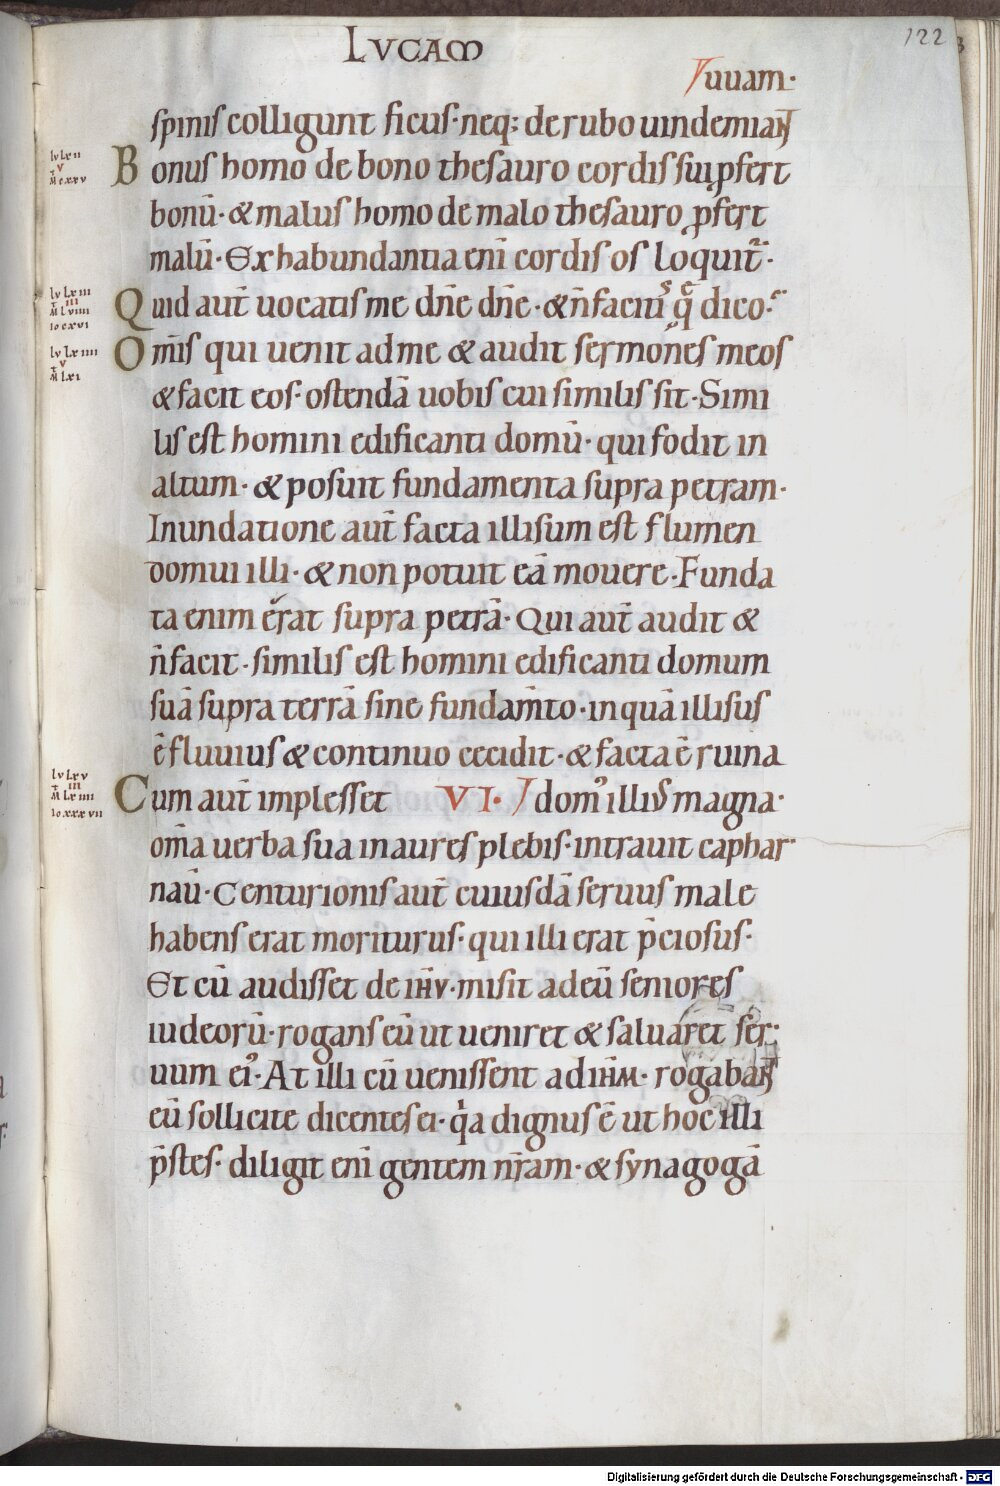 LVCAM
122
uuam·
spinis colligunt ficus· neq; de rubo uindemiaɴt
Bonus homo de bono thesauro cordis sui ꝓfert
bonū· & malus homo de malo thesauro ꝓfert
malū· Ex habundantia enī cordis os loquit᷑·
Quid aut̄ uocatis me dn̄e dn̄e· & n̄ facitis q̄ dico·
Om̄is qui uenit ad me & audit sermones meos
& facit eos· ostendā uobis cui similis sit· Simi
lis est homini edificanti domū· qui fodit in
altum· & posuit fundamenta supra petram·
Inundatione aut̄ facta illisum est flumen
domui illi· & non potuit eā mouere· Funda
ta enim erat supra petrā· Qui aut̄ audit &
n̄ facit· similis est homini edificanti domum
suā supra terrā sine fundam̄to· in quā illisus
ē fluuius & continuo cecidit· & facta ē ruina
Cum aut̄ implesset VI· domꝰ illiꝰ magna·
om̄a uerba sua in aures plebis· intrauit caphar
naū· Centurionis aut̄ cuiusdā seruus male
habens erat moriturus· qui illi erat p̄ciosus·
Et cū audisset de ihv· misit ad eū seniores
iudeorū· rogans eū ut ueniret & saluaret ser
uum eiꝰ· At illi cū uenissent ad ihm̄· rogabaɴt
eū sollicite dicentes ei· qͥa dignus ē ut hoc illi
p̄stes· diligit enī gentem nr̄am· & synagogā
lv lxii
v
M cxxv
lv lxiii
iii
M lviiii
io cxvi
lv lxiiii
v
M lxi
lv lxv
iii
M lxiiii
io xxxvii
Digitalisierung gefördert durch die Deutsche Forschungsgemeinschaft - DFG